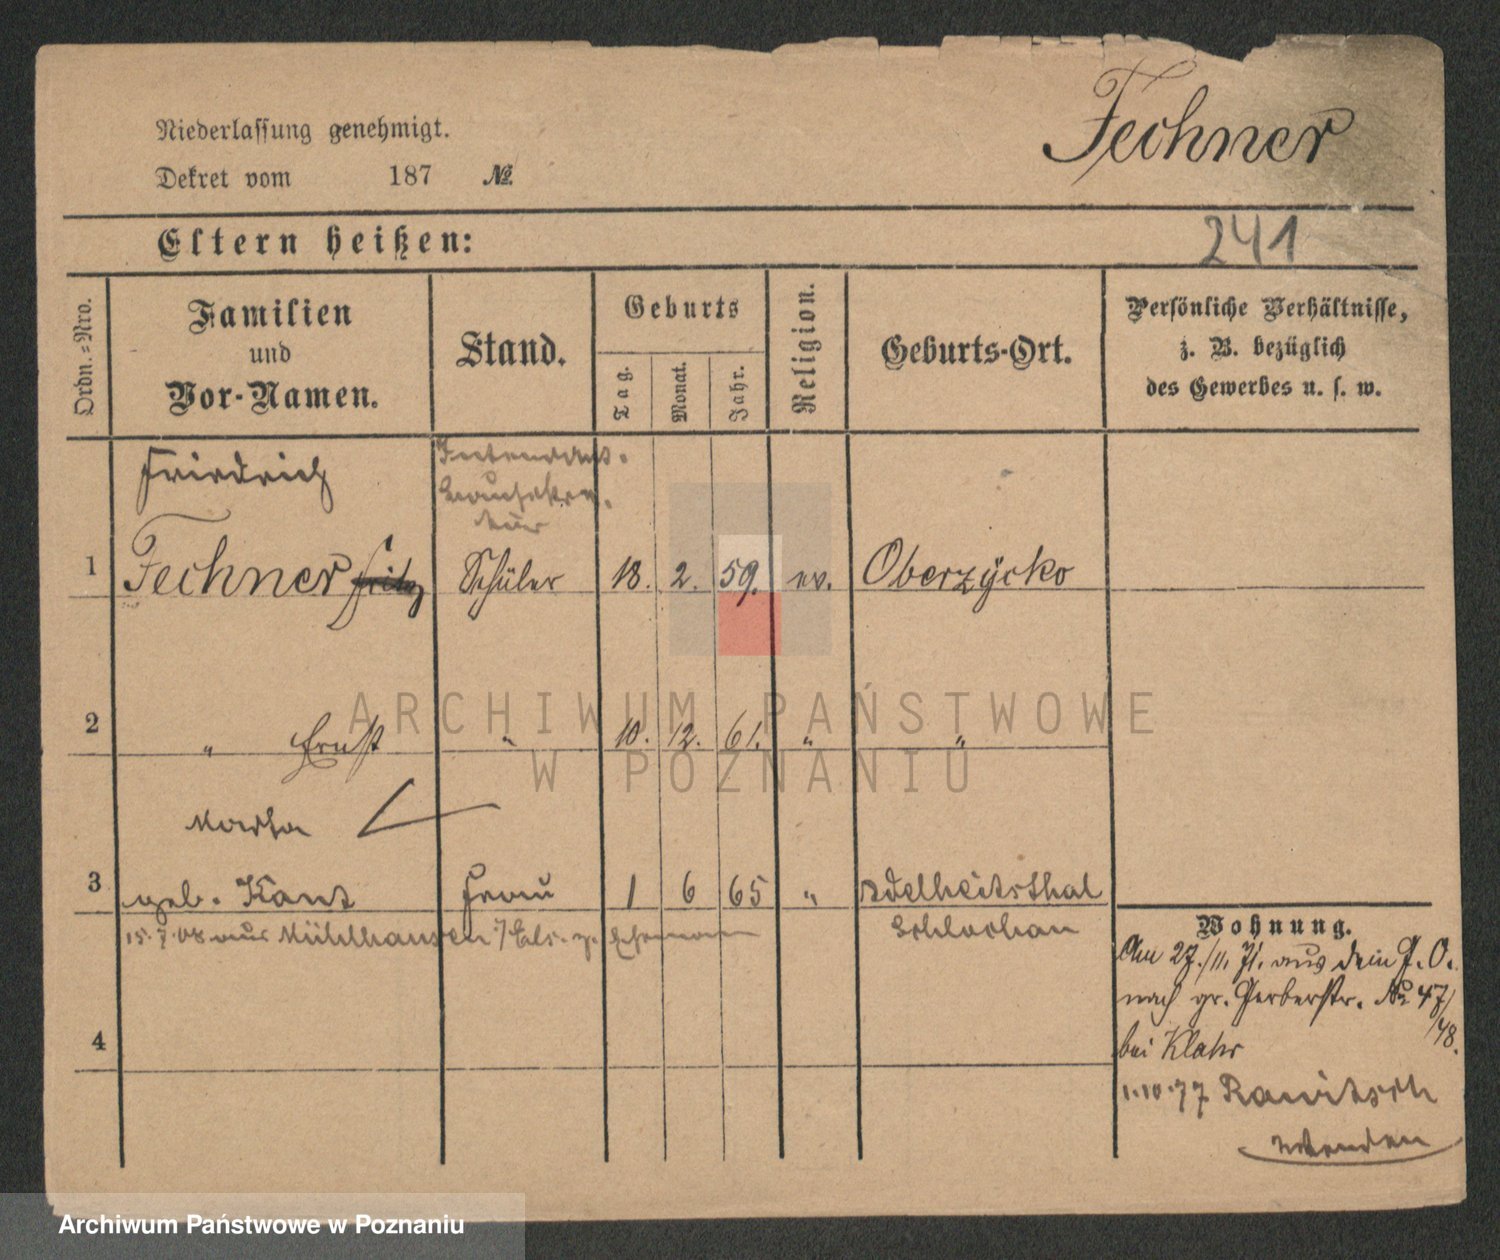 Niederlassung genehmigt.
Fechner
Dekret vom 187 №.
Eltern heißen:
241
Ordn.=Nro.
Familien
und
Vor-Namen.
Stand.
Geburts
Tag.
Monat.
Jahr.
Religion.
Geburts-Ort.
Persönliche Verhältnisse,
z. B. bezüglich
des Gewerbes u. s. w.
Friedrich
1 Fechner Fritz Schüler 18. 2. 59. ev. Oberzycko
2 " Ernst " 10. 12. 61. " "
Martha
3 geb. Kant Frau 1 6 65 " Adelheitsthal
15.7.08 aus Mühlhausen / Els. z. Ehemann
Schlochau
Wohnung.
Am 27./11. 71. aus dem G. O.
nach gr. Gerberstr. № 47/
48.
bei Klahr
1.10.77 Rawitsch
wenden
4
ARCHIWUM PAŃSTWOWE
W POZNANIU
Archiwum Państwowe w Poznaniu